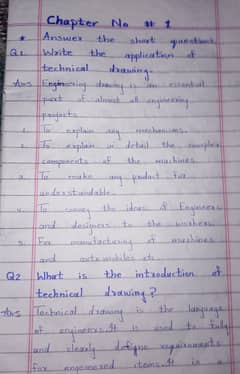 Chapter No # 1
* Answer the short questions.
Q1 Write the application of
technical drawing.
Ans Engineering drawing is an essential
part of almost all engineering
projects
1. To explain any mechanisms.
2. To explain in detail the complex
components of the machines
3. To make any product for
understandable.
4. To convey the ideas of Engineers
and designers to the workers
5. For manufacturing of machines
and automobiles etc.
Q2 What is the introduction of
technical drawing?
Ans Technical drawing is the language
of engineers. It is used to fully
and clearly define requirements
for engineered items. It is a